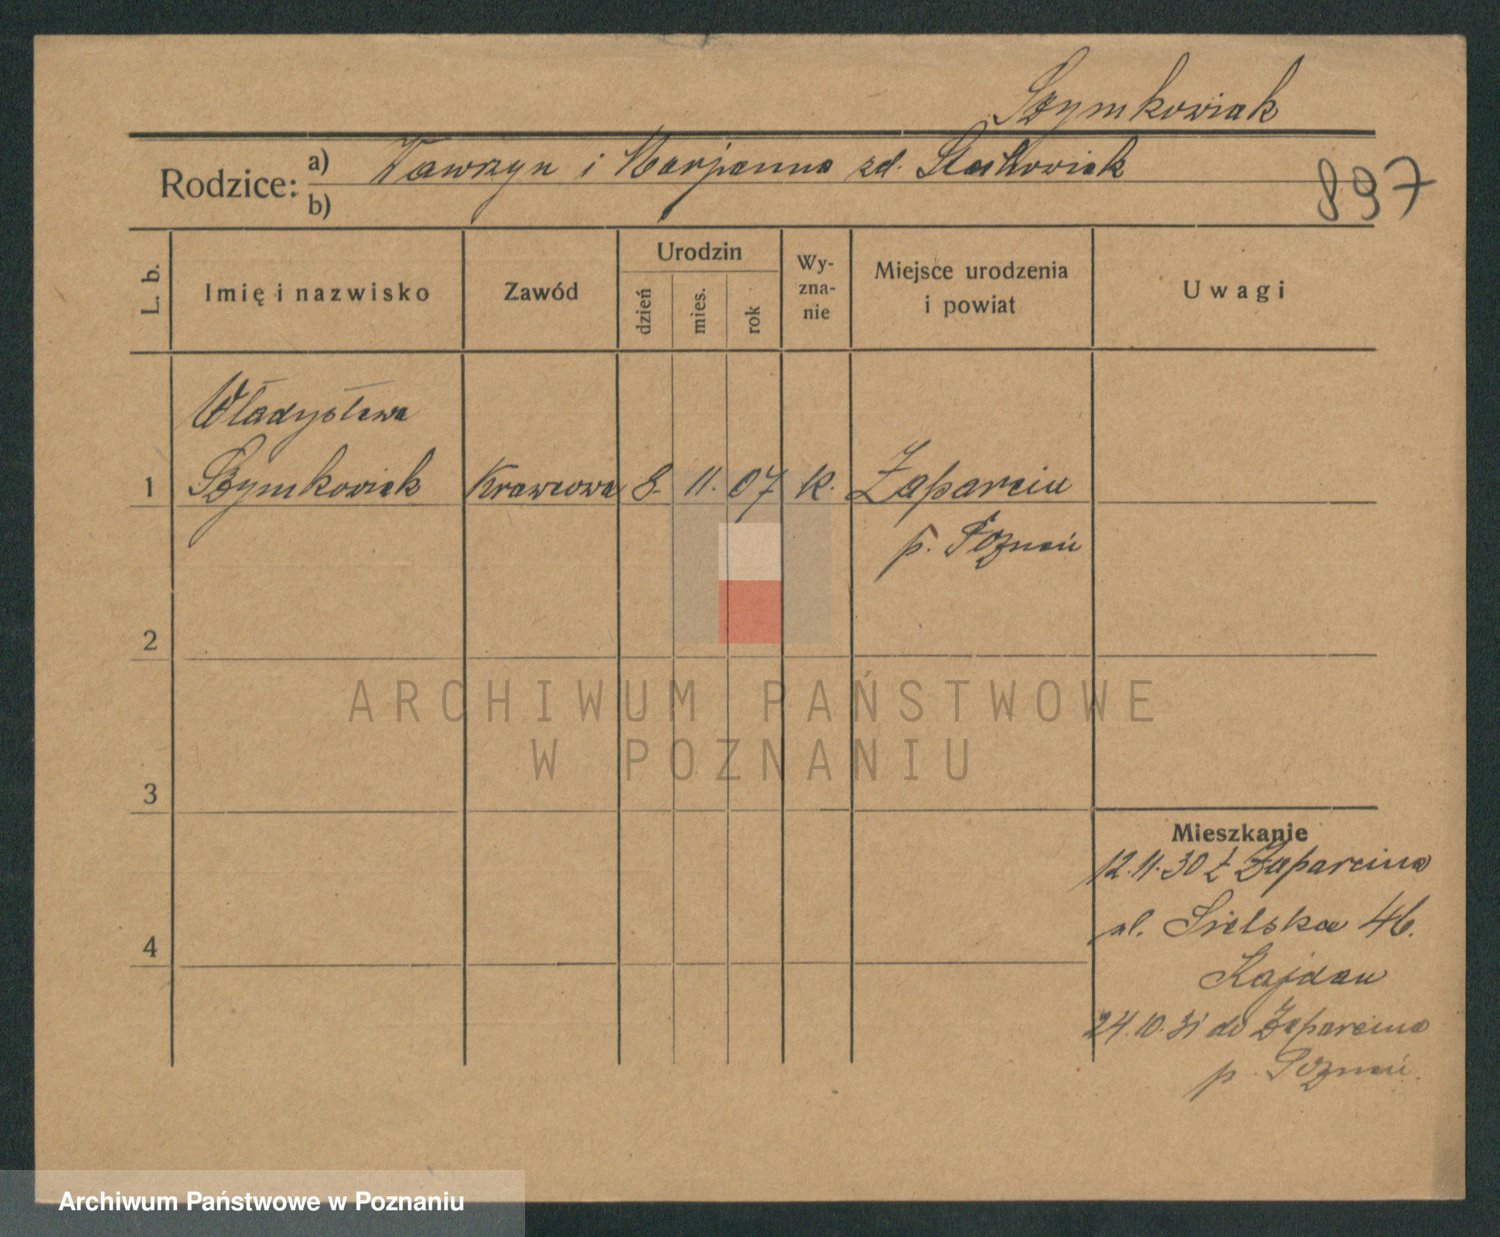 Szymkowiak
Rodzice: a) Wawrzyn i Marjanna zd. Staśkowiak
b)
897
L. b.
Imię i nazwisko
Zawód
Urodzin
dzień
mies.
rok
Wy-
zna-
nie
Miejsce urodzenia
i powiat
Uwagi
Władysława
1 Szymkowiak Krawcowa 8. 11. 07 k. Zaparcin
p. Poznań
2
3
4
Mieszkanie
12.11.30 z Zaparcina
ul. Sielska 46.
Kajdan
24.10.31 do Zaparcina
p. Poznań.
ARCHIWUM PAŃSTWOWE
W POZNANIU
Archiwum Państwowe w Poznaniu